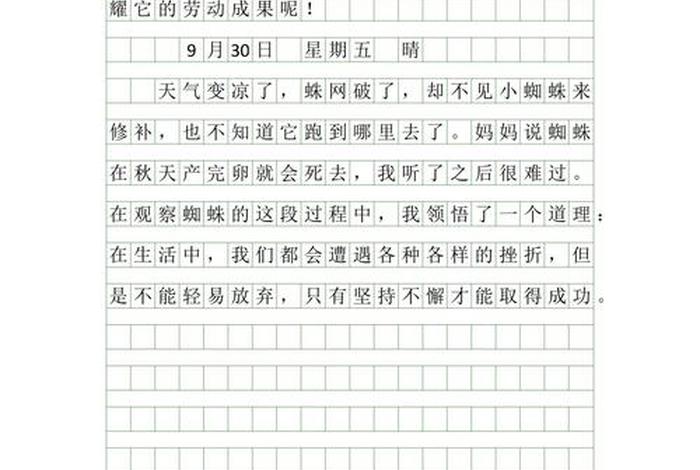 耀它的劳动成果呢！
9月30日 星期五 晴
天气变凉了，蛛网破了，却不见小蜘蛛来
修补，也不知道它跑到哪里去了。妈妈说蜘蛛
在秋天产完卵就会死去，我听了之后很难过。
在观察蜘蛛的这段过程中，我领悟了一个道理：
在生活中，我们都会遭遇各种各样的挫折，但
是不能轻易放弃，只有坚持不懈才能取得成功。